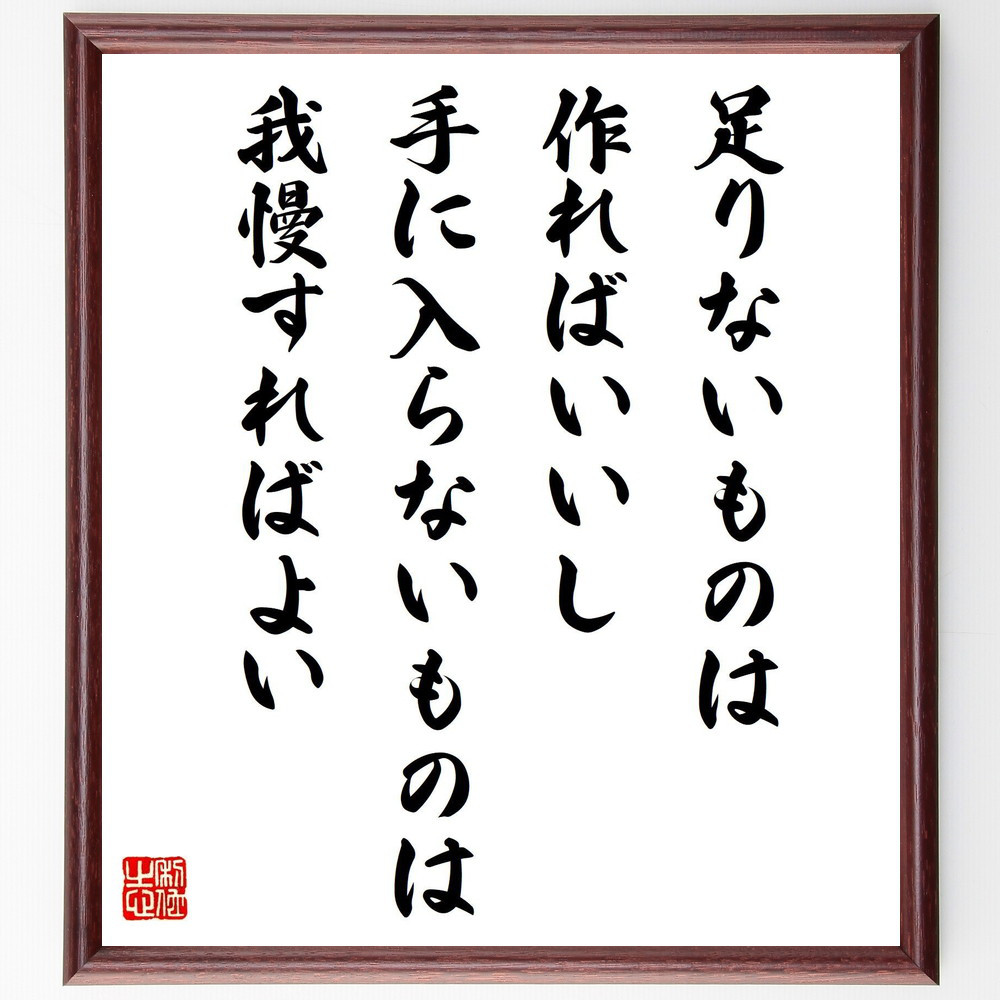 足りないものは
作ればいいし
手に入らないものは
我慢すればよい